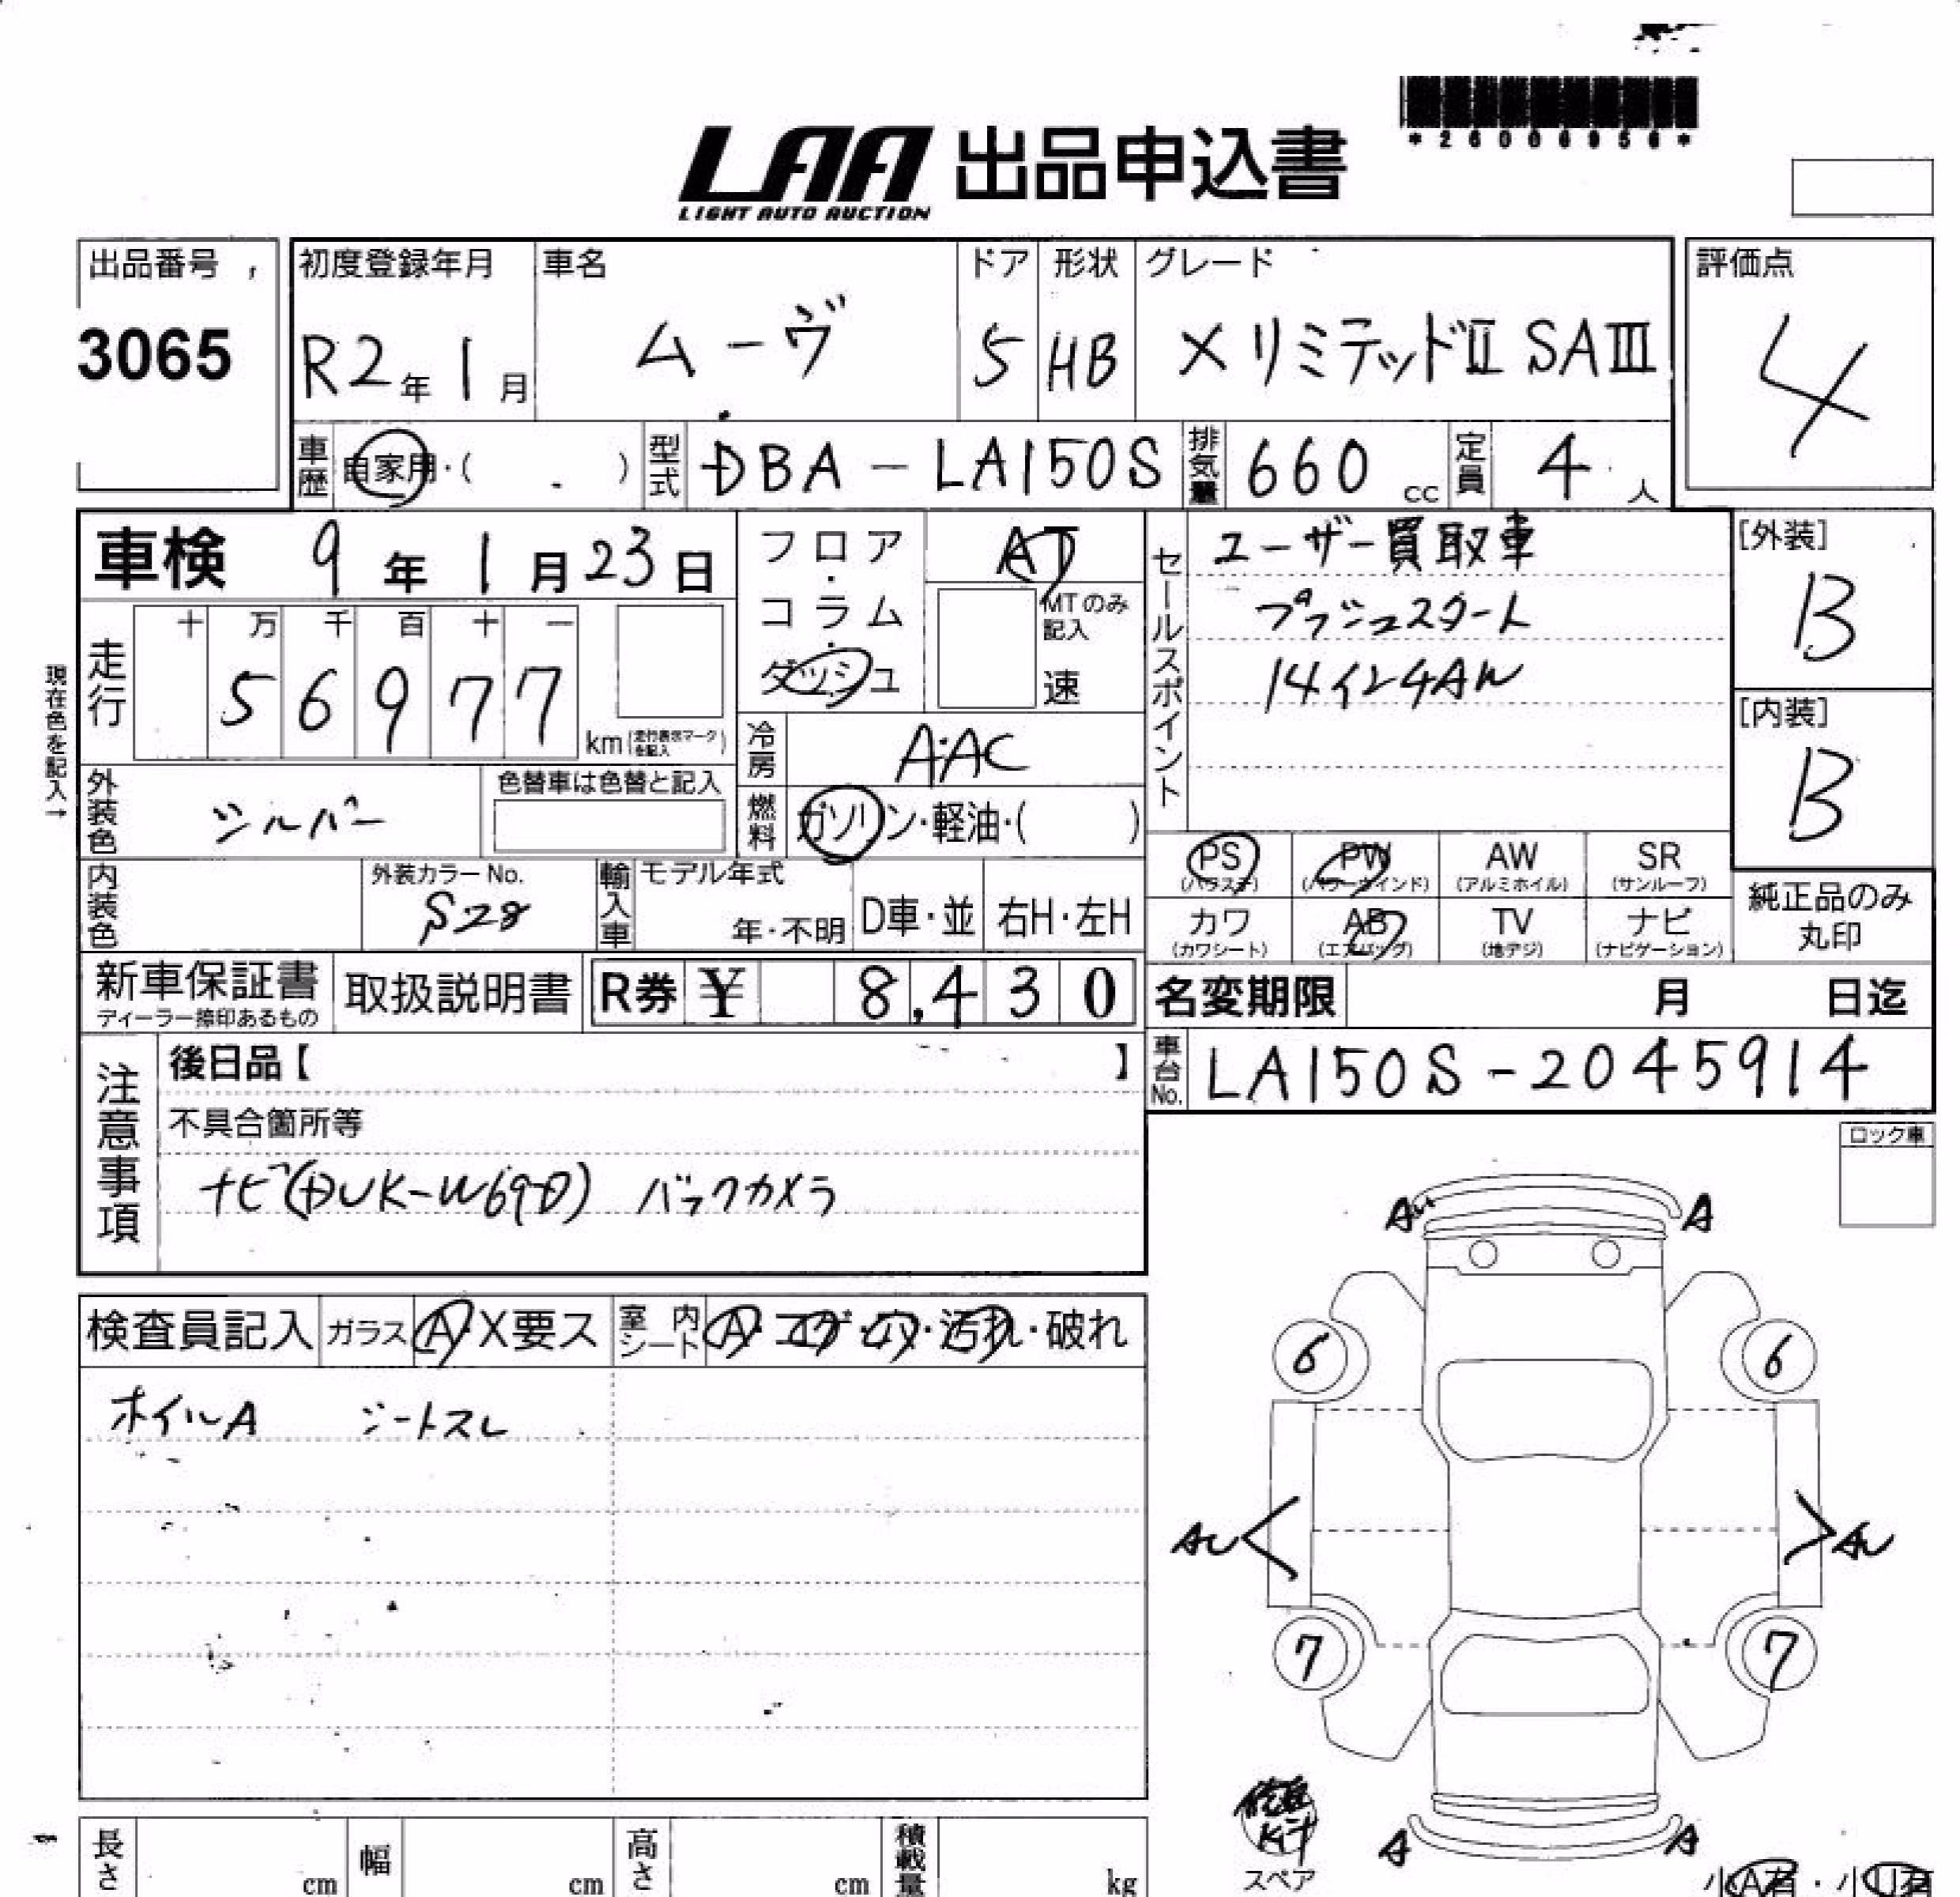 *26006956*
LAA 出品申込書
LIGHT AUTO AUCTION
出品番号
3065
初度登録年月
R2年1月
車名
ムーヴ
ドア
5
形状
HB
グレード
X リミテッドII SAIII
評価点
4
車歴
自家用・( )
型式
DBA-LA150S
排気量
660 cc
定員
4 人
車検 9年1月23日
フロア・コラム・ダッシュ
AT
MTのみ記入
速
セールスポイント
ユーザー買取車
プッシュスタート
14インチAW
[外装]
B
[内装]
B
現在色を記入→
走行
十 万 千 百 十 一
5 6 9 7 7
km(走行表示マークを記入)
冷房
AAC
外装色
シルバー
色替車は色替と記入
燃料
ガソリン・軽油・( )
PS
(パワステ)
PW
(パワーウインド)
AW
(アルミホイル)
SR
(サンルーフ)
カワ
(カワシート)
AB
(エアバッグ)
TV
(地デジ)
ナビ
(ナビゲーション)
純正品のみ
丸印
内装色
外装カラー No.
S28
輸入車
モデル年式
年・不明
D車・並
右H・左H
新車保証書
ディーラー捺印あるもの
取扱説明書
R券 ¥ 8,430
名変期限 月 日迄
車台No.
LA150S-2045914
注意事項
後日品【 】
不具合箇所等
ナビ(DUK-W69D) バックカメラ
ロック車
検査員記入
ガラス
A・X要ス
室内シート
A・コゲ・穴・汚れ・破れ
ホイルA シートスレ
A A
6 6
7 7
A A
スペア
小A有・小U有
長さ cm
幅 cm
高さ cm
積載量 kg